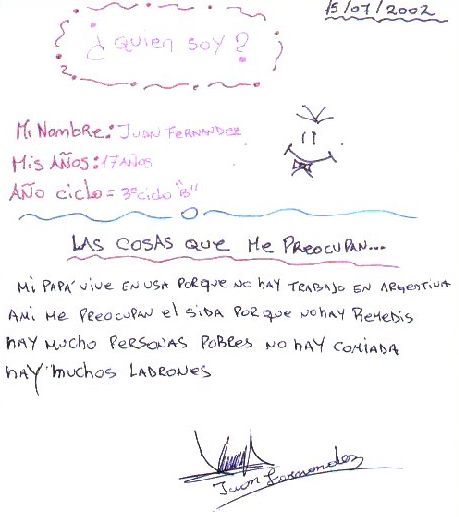 15/07/2002
¿quien soy?
Mi Nombre: JUAN FERNANDEZ
Mis AÑOS: 17 AÑOS
AÑO ciclo = 3º ciclo "B"
LAS COSAS QUE Me PREOCUPAN...
Mi PAPÁ vive EN USA PORQUE NO hAY TRABAJO EN ARGENTINA
AMI Me PREOCUPAN el SIDA POR QUE NO hAY REMEDIS
hAY MUCHO PERSONAS POBRES NO hAY COMIADA
hAY muchos LADRONES
Juan Fernandez